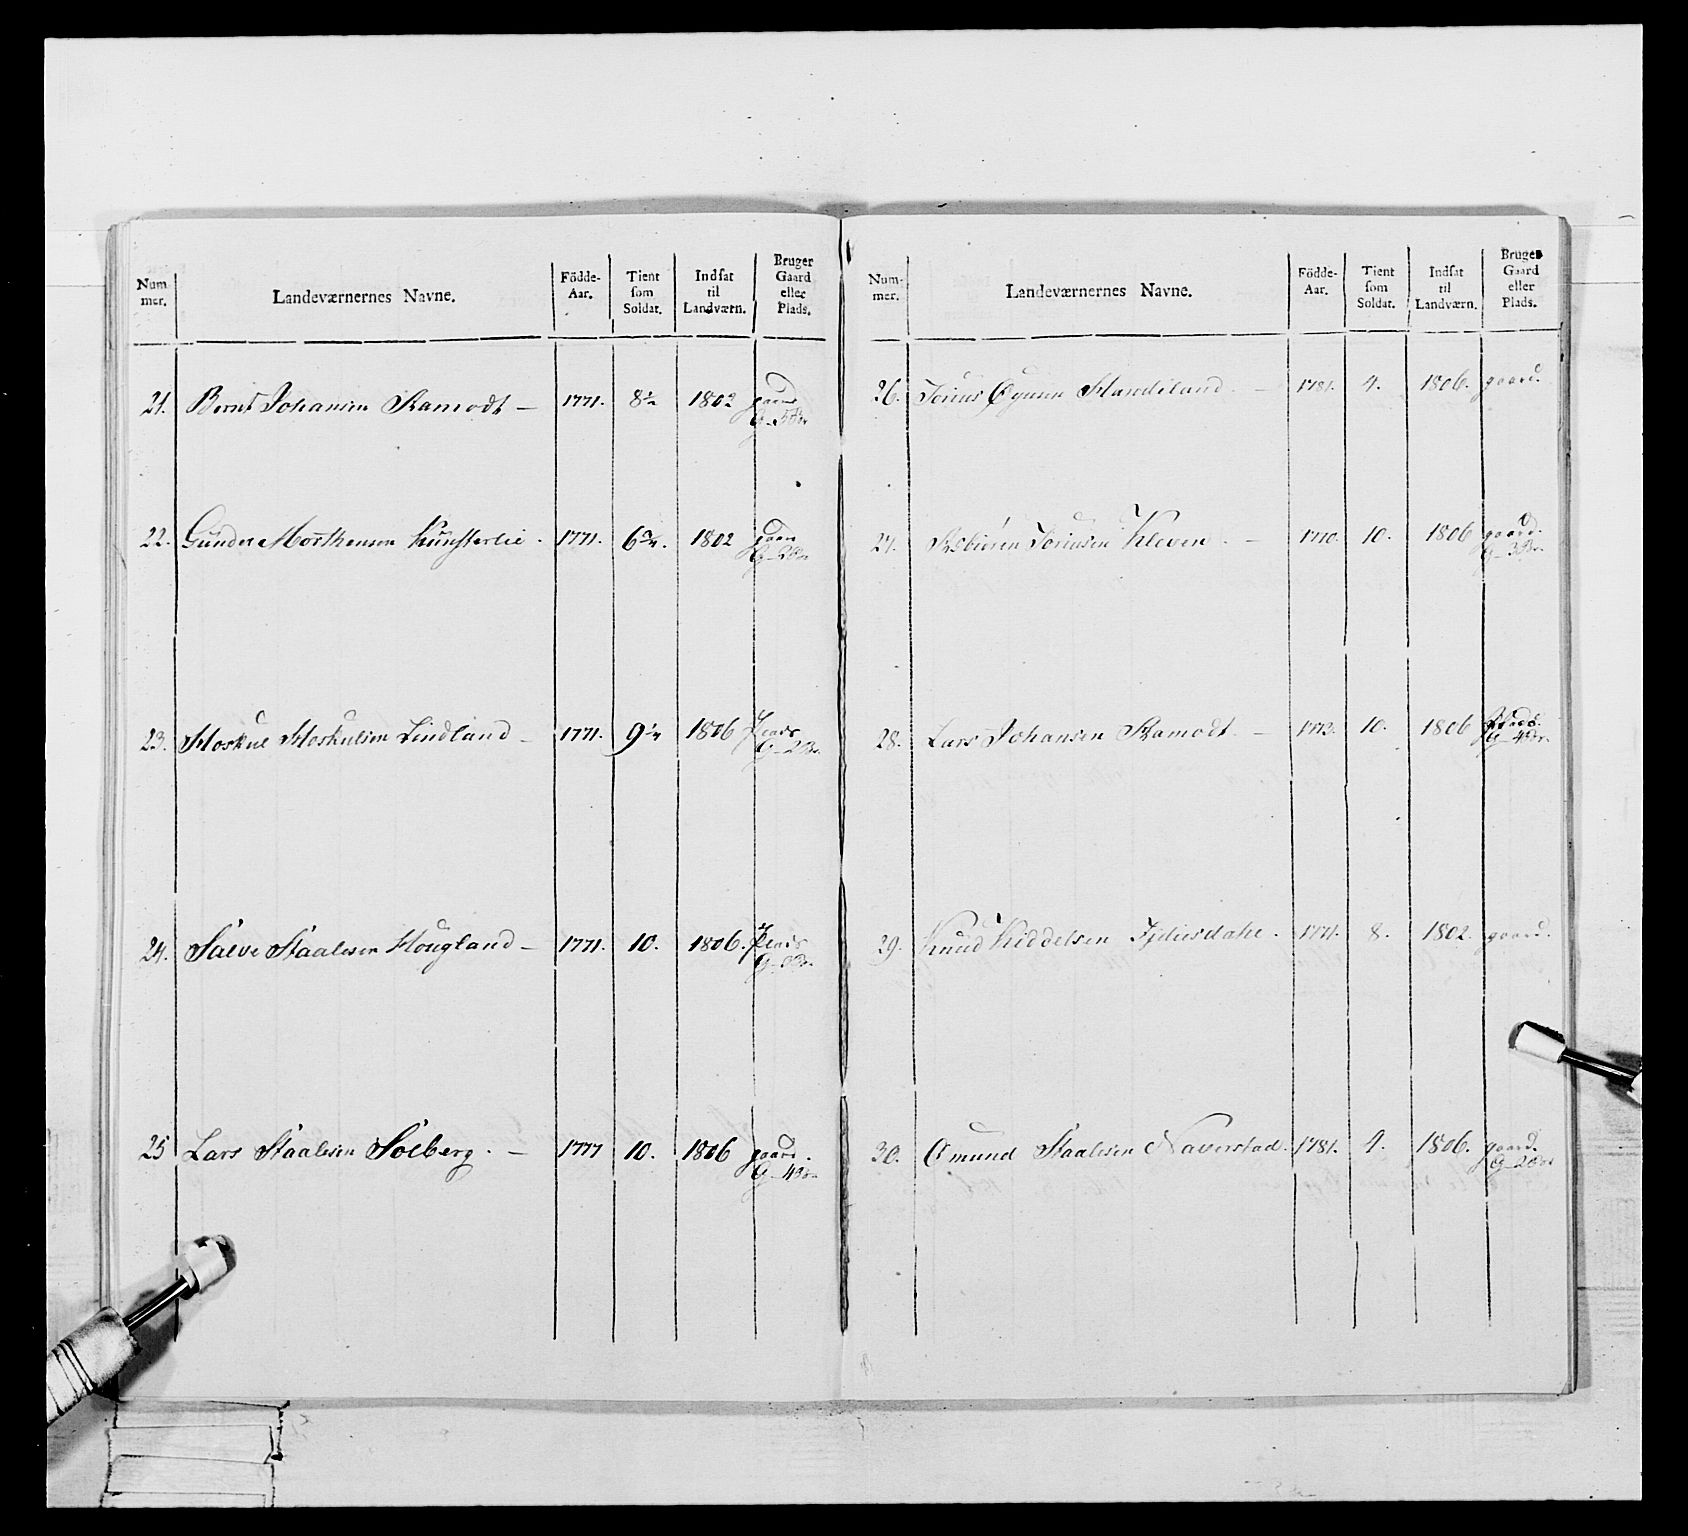 Num mer. Landeværnernes Navne. Födde-Aar. Tient som Soldat. Indsat til Landværn. Bruger Gaard eller Plads.
21. Bernt Johansen Ramodt — 1771. 8½ 1802 gaard
G_ 5Br
22. Gunder Morthensen Kunsterlie . 1771. 6¾. 1802 gaard
G_ 2Br
23. Hoskul Hoskulsen Lindland _ 1771. 9¼ 1806 Plads
G_ 2Br.
24. Salve Staalesen Hougland — 1771. 10. 1806. Plads
25 Lars Staalesen Solberg . — 1777 10. 1806 gaard.
G_ 4Br
Num-mer. Landeværnernes Navne. Födde-Aar. Tient som Soldat. Indsat til Landværn. Bruger Gaard eller Plads.
26. Jorius Øgusen Handeland. — 1781. 4. 1806. gaard.
27. Asbiören Joriusen Kleven. — 1770. 10. 1806 gaard.
G_ 3Br.
28. Lars Johansen Ramodt. — 1773. 10. 1806 Plads.
G_ 4Br.
29. Knud Kiddelsen . 1771. 8. 1802. gaard.
30. Omund Staalesen Naverstad. 1781. 4. 1806. gaard.
G_ 2Br